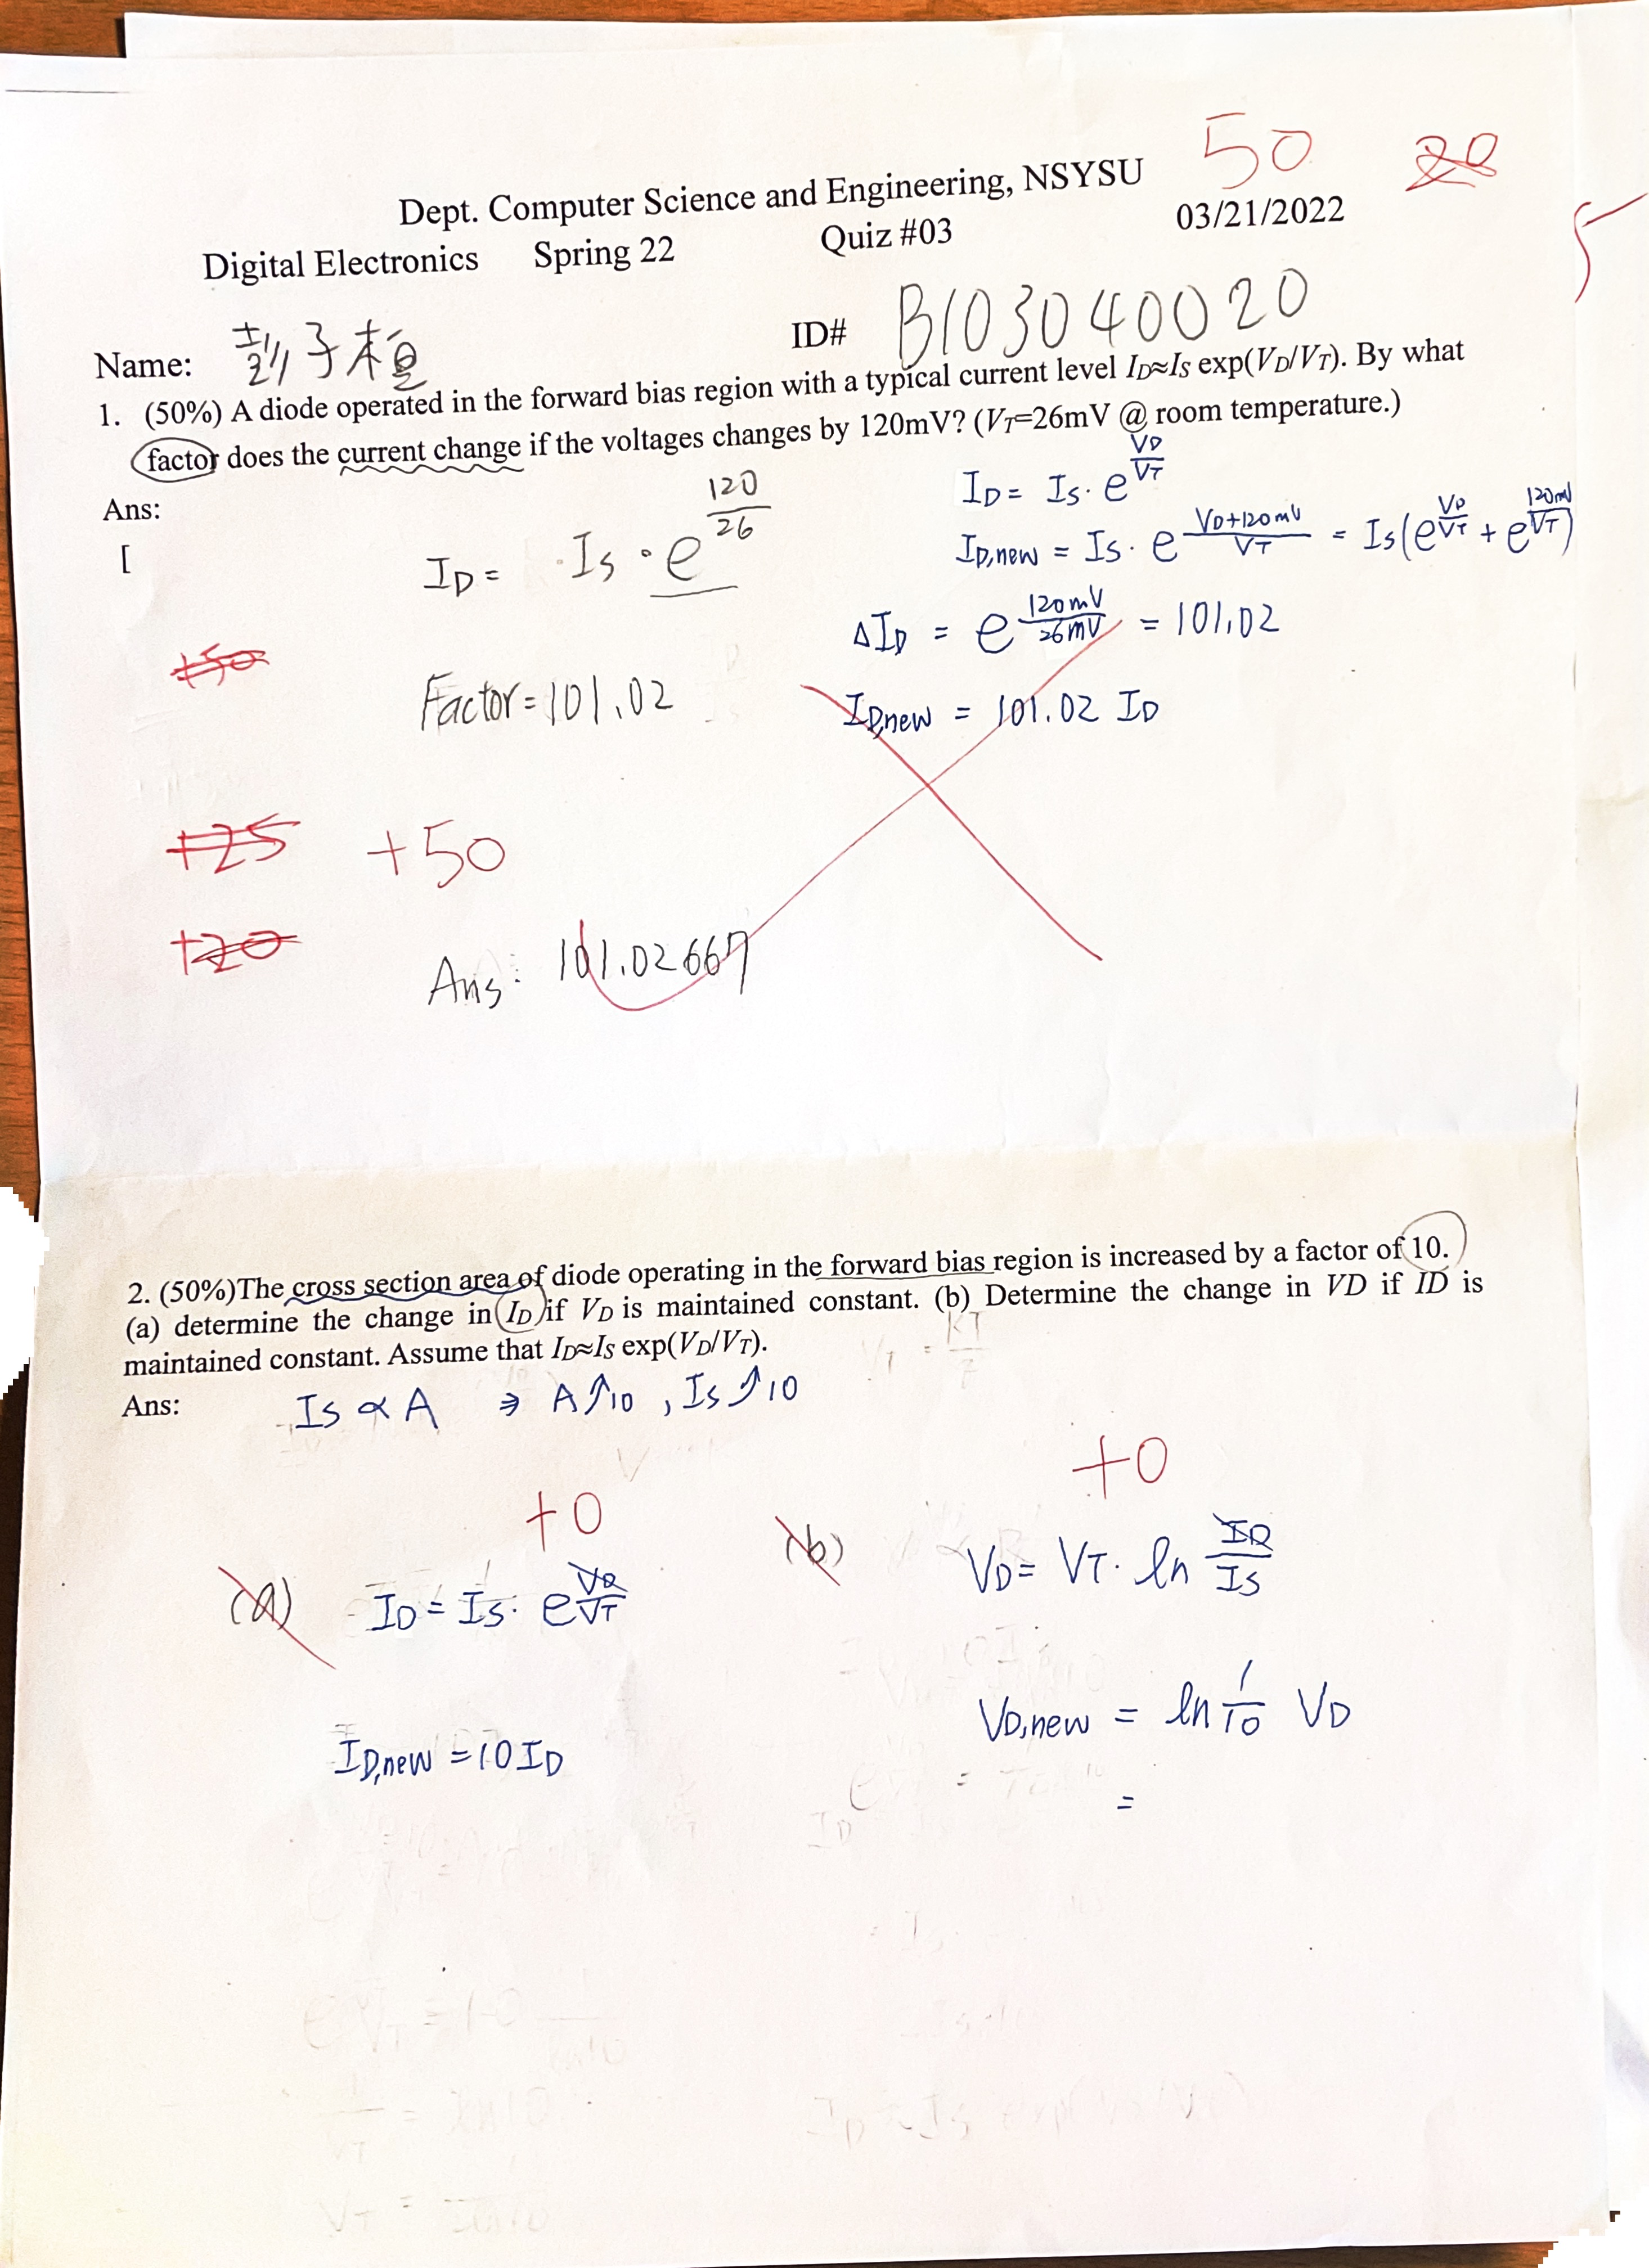 50 20
Dept. Computer Science and Engineering, NSYSU
03/21/2022
Digital Electronics Spring 22 Quiz #03
5
Name: 彭子桓 ID# B103040020
1. (50%) A diode operated in the forward bias region with a typical current level ID≈IS exp(VD/VT). By what
factor does the current change if the voltages changes by 120mV? (VT=26mV @ room temperature.)
Ans:
[
ID = Is · e^(120/26)
+50
Factor = 101.02
+25 +50
+20
Ans: 101.02667
ID = Is · e^(VD/VT)
ID,new = Is · e^((VD+120mV)/VT) = Is(e^(VD/VT) + e^(120mV/VT))
ΔID = e^(120mV/26mV) = 101.02
ID,new = 101.02 ID
2. (50%)The cross section area of diode operating in the forward bias region is increased by a factor of 10.
(a) determine the change in ID if VD is maintained constant. (b) Determine the change in VD if ID is
maintained constant. Assume that ID≈IS exp(VD/VT).
VT = KT/q
Ans: Is ∝ A ⇒ A↑10 , Is↑10
+0
(a) ID = Is · e^(VD/VT)
ID,new = 10ID
+0
(b) VD = VT · ln ID/Is
VD,new = ln 1/10 VD
=